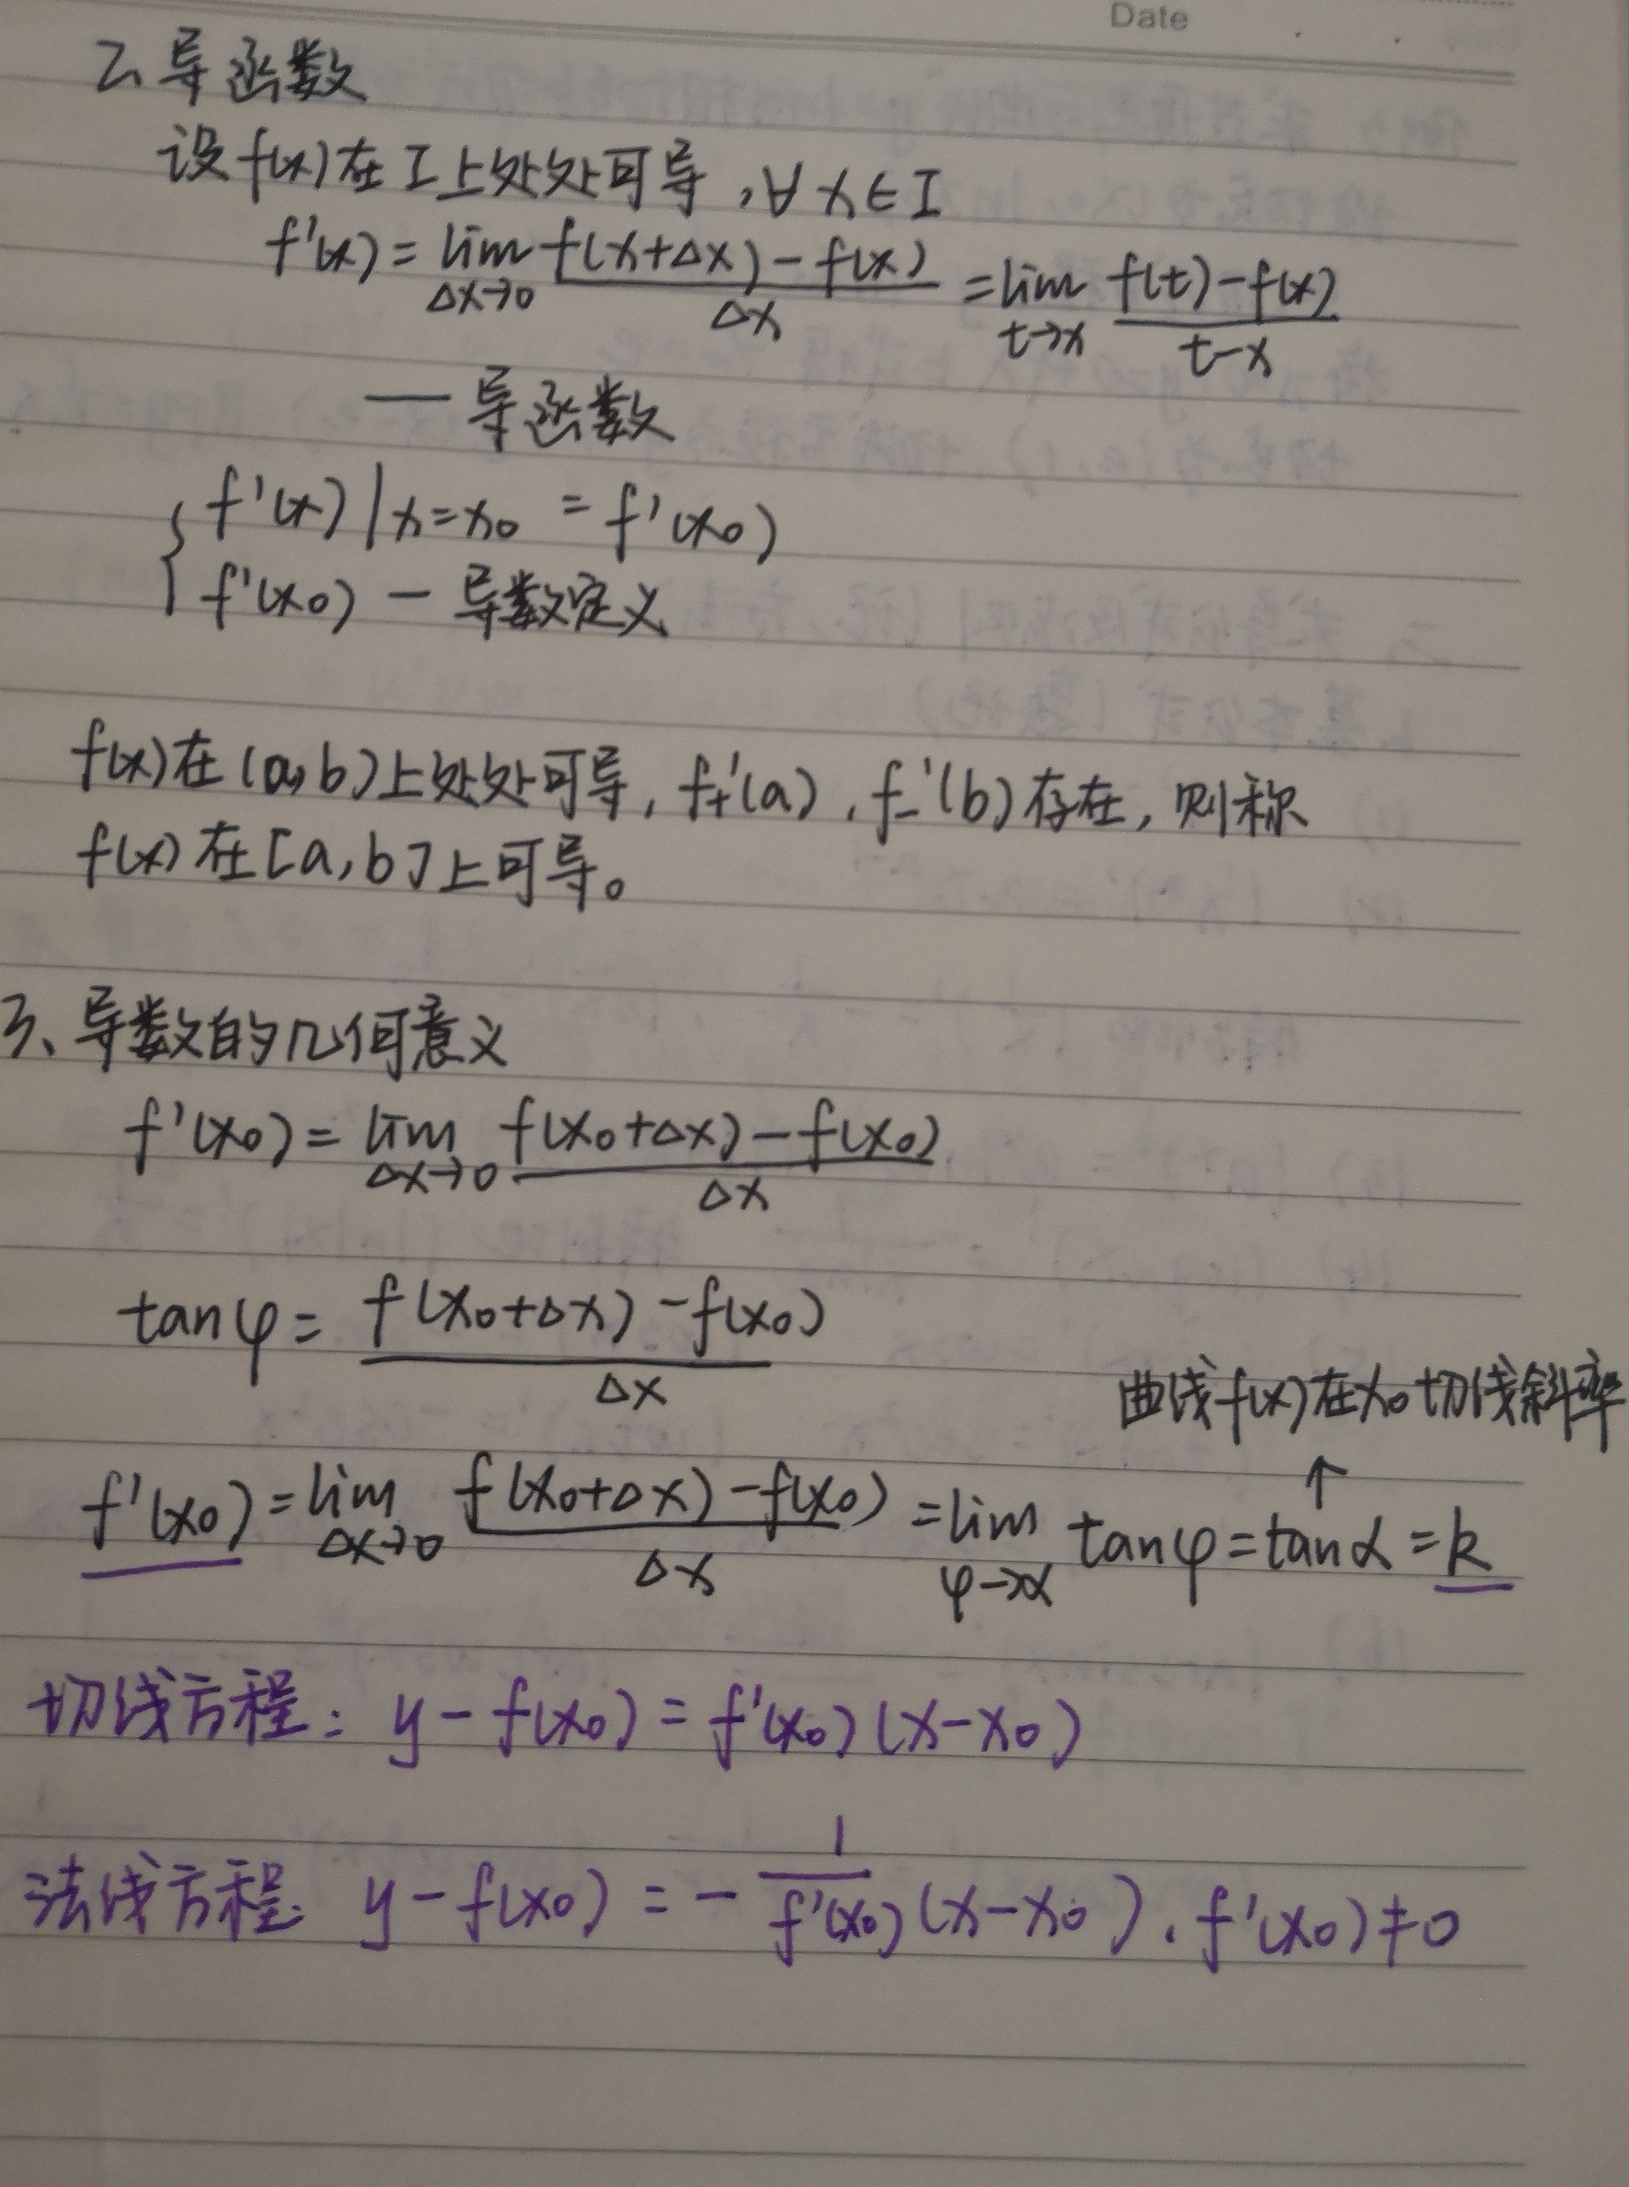 Date
2、导函数
设f(x)在I上处处可导,∀x∈I
f'(x)=lim_{Δx→0} (f(x+Δx)-f(x))/Δx =lim_{t→x} (f(t)-f(x))/(t-x)
— 导函数
{ f'(x)|x=x₀ = f'(x₀)
f'(x₀) — 导数定义
f(x)在(a,b)上处处可导, f₊'(a), f₋'(b)存在, 则称
f(x)在[a,b]上可导。
3、导数的几何意义
f'(x₀)=lim_{Δx→0} (f(x₀+Δx)-f(x₀))/Δx
tanφ= (f(x₀+Δx)-f(x₀))/Δx
曲线f(x)在x₀切线斜率
↑
f'(x₀)=lim_{Δx→0} (f(x₀+Δx)-f(x₀))/Δx =lim_{φ→α} tanφ=tanα=k
切线方程: y-f(x₀)=f'(x₀)(x-x₀)
法线方程: y-f(x₀)=-1/f'(x₀) (x-x₀), f'(x₀)≠0